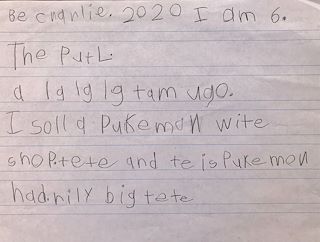 Be cranlie. 2020 I am 6.
The PutL.
a lg lg lg tam ugo.
I soll a Pukemon wite
shop.tete and te is Pukemon
had.nily big tete